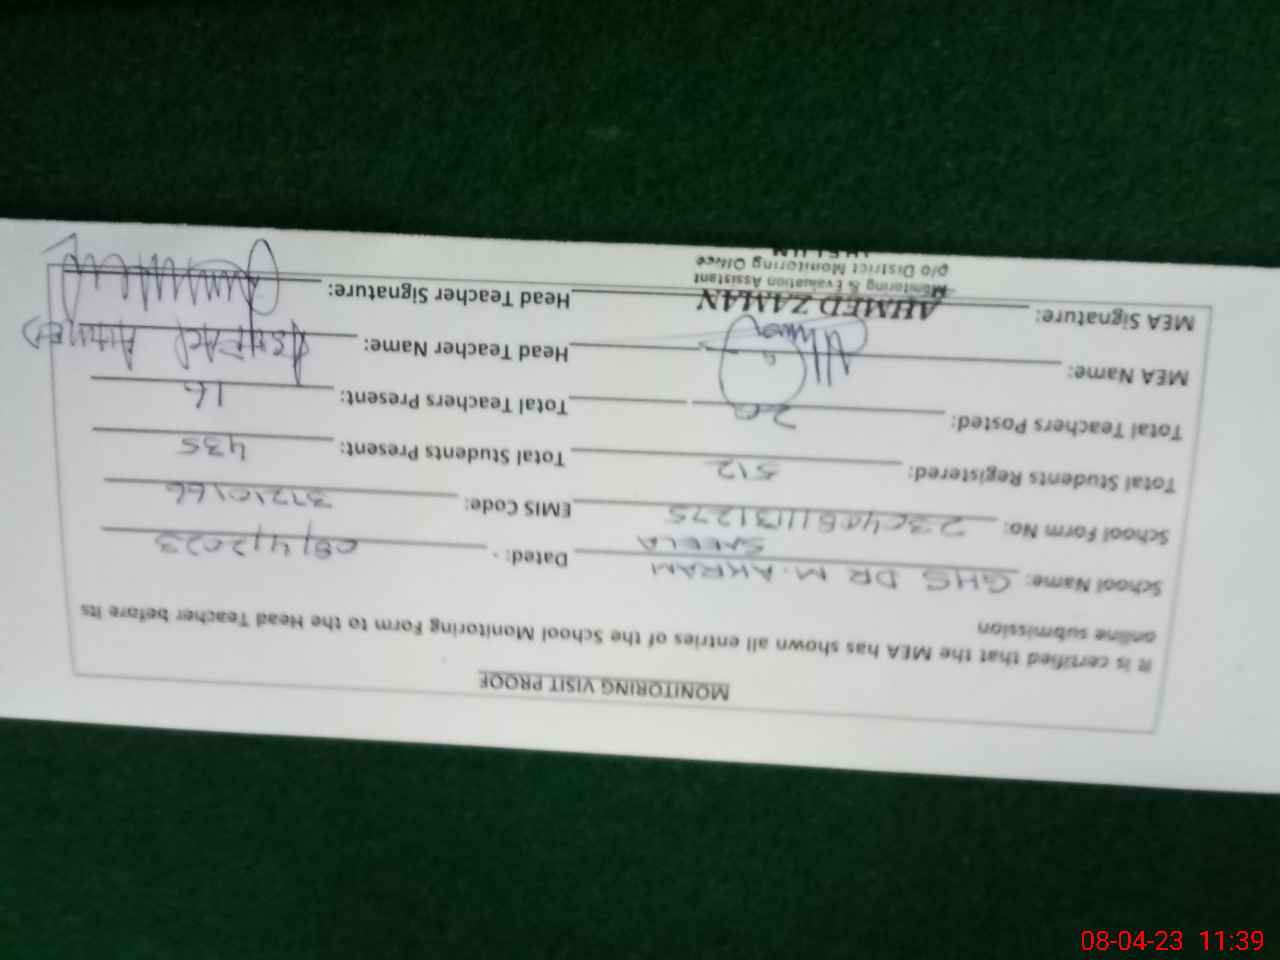 MONITORING VISIT PROOF
It is certified that the MEA has shown all entries of the School Monitoring Form to the Head Teacher before its
online submission
School Name: GHS DR M. AKRAM Dated: 08/4/2023
SNEELA
School Form No: EMIS Code: 37210166
Total Students Registered: 512 Total Students Present: 435
Total Teachers Posted: 20 Total Teachers Present: 16
MEA Name: Head Teacher Name: AHMED
MEA Signature: AHMED ZAMAN Head Teacher Signature:
Monitoring & Evaluation Assistant
O/o District Monitoring Office
08-04-23 11:39